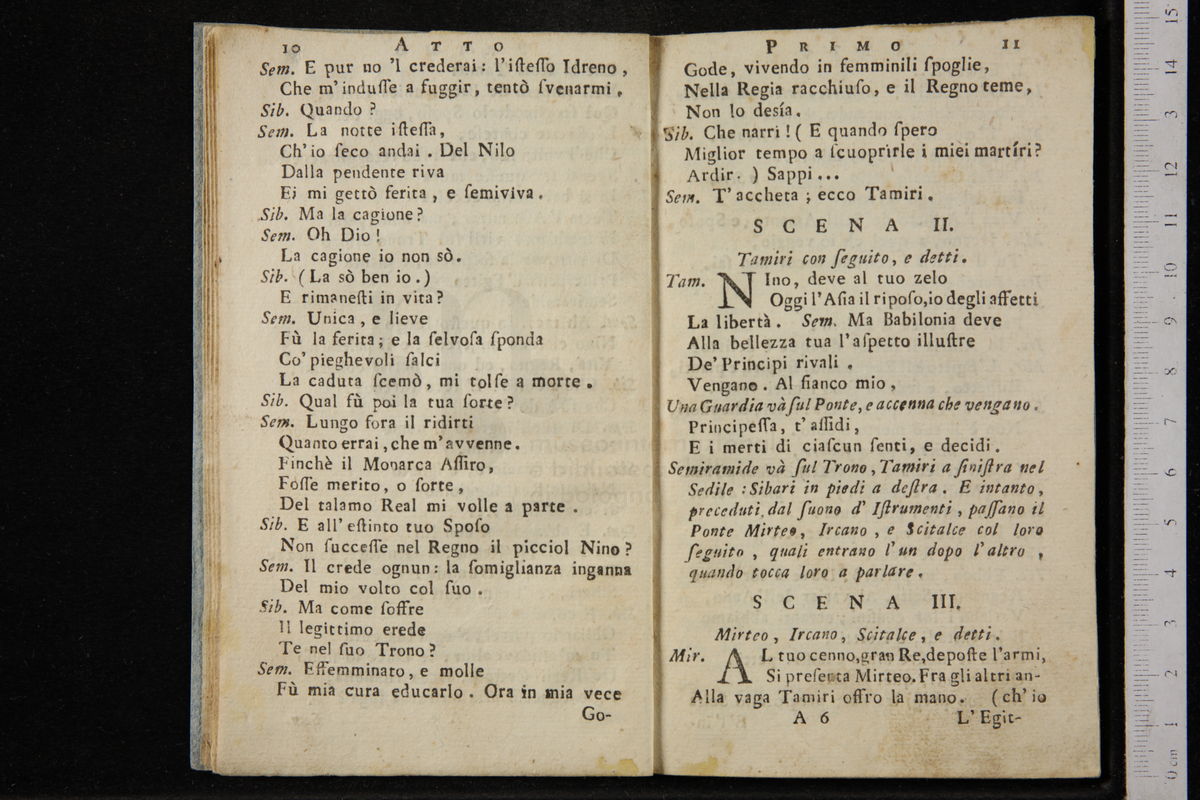 10 ATTO
Sem. E pur no 'l crederai: l'iſteſſo Idreno,
Che m'induſſe a fuggir, tentò ſvenarmi,
Sib. Quando?
Sem. La notte iſteſſa,
Ch'io ſeco andai. Del Nilo
Dalla pendente riva
Ei mi gettò ferita, e ſemiviva.
Sib. Ma la cagione?
Sem. Oh Dio!
La cagione io non sò.
Sib. (La sò ben io.)
E rimaneſti in vita?
Sem. Unica, e lieve
Fù la ferita; e la ſelvoſa ſponda
Co' pieghevoli ſalci
La caduta ſcemò, mi tolſe a morte.
Sib. Qual fù poi la tua ſorte?
Sem. Lungo fora il ridirti
Quanto errai, che m'avvenne.
Finchè il Monarca Aſſiro,
Foſſe merito, o ſorte,
Del talamo Real mi volle a parte.
Sib. E all' eſtinto tuo Spoſo
Non ſucceſſe nel Regno il picciol Nino?
Sem. Il crede ognun: la ſomiglianza inganna
Del mio volto col ſuo.
Sib. Ma come ſoffre
Il legittimo erede
Te nel ſuo Trono?
Sem. Effemminato, e molle
Fù mia cura educarlo. Ora in mia vece
Go-
PRIMO 11
Gode, vivendo in femminili ſpoglie,
Nella Regia racchiuſo, e il Regno teme,
Non lo desía.
Sib. Che narri! (E quando ſpero
Miglior tempo a ſcuoprirle i miei martíri?
Ardir.) Sappi...
Sem. T' accheta; ecco Tamiri.
SCENA II.
Tamiri con ſeguito, e detti.
Tam. NIno, deve al tuo zelo
Oggi l'Aſia il ripoſo, io degli affetti
La libertà. Sem. Ma Babilonia deve
Alla bellezza tua l'aſpetto illuſtre
De' Principi rivali.
Vengano. Al fianco mio,
Una Guardia và ſul Ponte, e accenna che vengano.
Principeſſa, t' aſſidi,
E i merti di ciaſcun ſenti, e decidi.
Semiramide và ſul Trono, Tamiri a ſiniſtra nel
Sedile: Sibari in piedi a deſtra. E intanto,
preceduti dal ſuono d' Iſtrumenti, paſſano il
Ponte Mirteo, Ircano, e Scitalce col loro
ſeguito, quali entrano l'un dopo l'altro,
quando tocca loro a parlare.
SCENA III.
Mirteo, Ircano, Scitalce, e detti.
Mir. AL tuo cenno, gran Re, depoſte l'armi,
Si preſenta Mirteo. Fra gli altri an-
Alla vaga Tamiri offro la mano. (ch' io
A 6 L' Egit-
0 cm 1 2 3 4 5 6 7 8 9 10 11 12 13 14 15